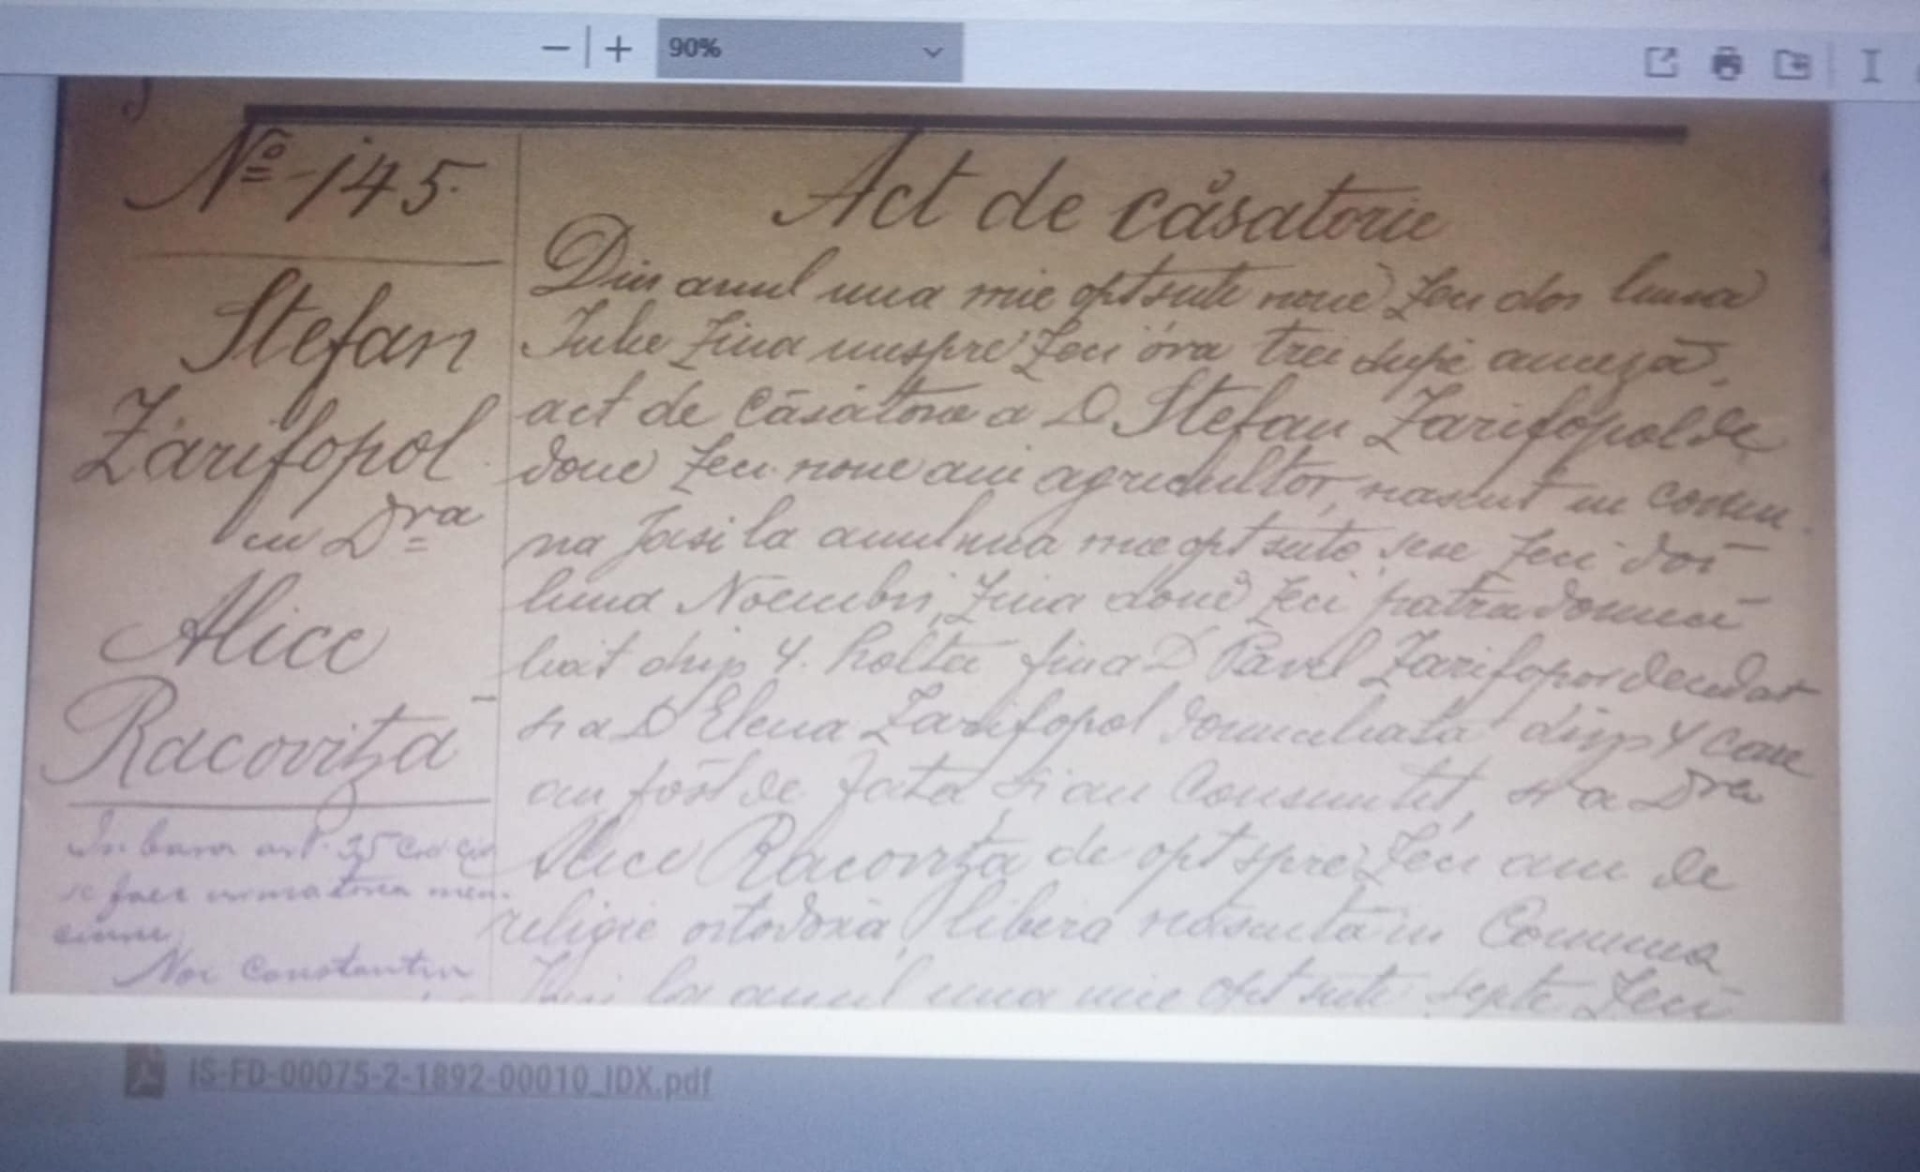 90%
No 145.
Stefan
Zarifopol
cu Dra
Alice
Racovitză
In baza art. 35 Cod Civ
se face urmatorea men-
ciune
Noi Constantin
Act de căsatorie
Din anul una mie optsute noue zeci doi luna
Iulie ziua unspre zeci óra trei dupe ameză,
act de căsătorie a D Stefan Zarifopol de
doue zeci noue ani agricultor, nascut in comu-
na Jasi la anul una mie opt sute sese zeci doi
luna Noembri, ziua doue zeci patru domici
liat 4. D Pavel Zarifopol decedat
si a D Elena Zarifopol domiciliata 4 care
au fost de fata si au consimtit, si a Dra
Alice Racovitza de opt spre zeci ani de
religie ortodoxă, liberă născuta in Comuna
Iasi la anul una mie opt sute septe zeci
IS-FD-00075-2-1892-00010_IDX.pdf